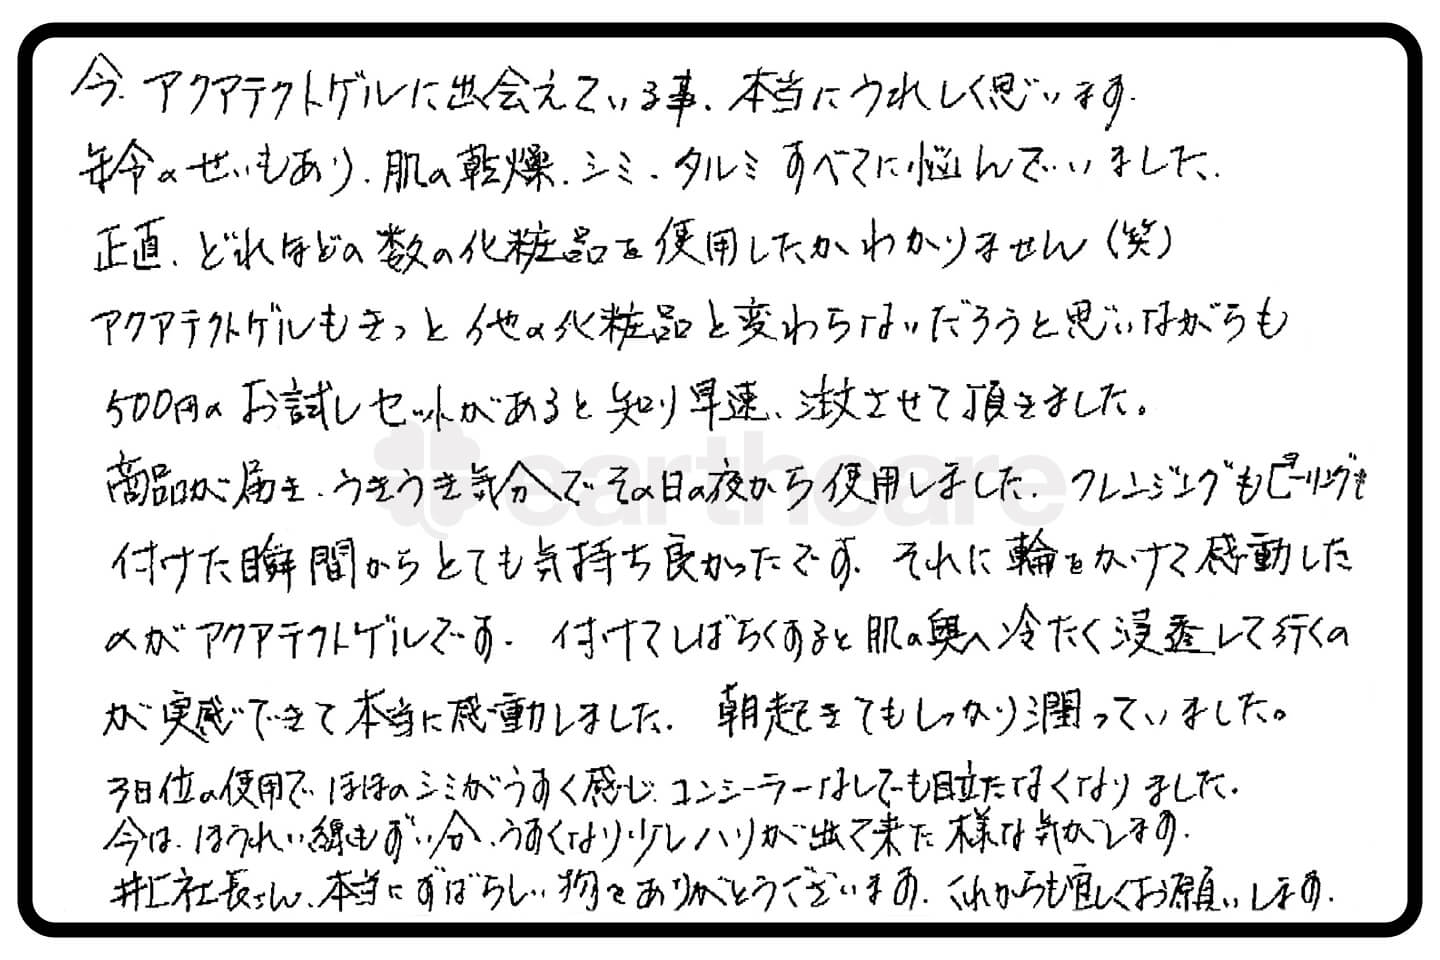 今、アクアテクトゲルに出会えている事、本当にうれしく思います。
年令のせいもあり、肌の乾燥、シミ、タルミすべてに悩んでいました。
正直、どれほどの数の化粧品を使用したかわかりません(笑)
アクアテクトゲルもきっと他の化粧品と変わらないだろうと思いながらも
500円のお試しセットがあると知り早速、注文させて頂きました。
earthcare
商品が届き、うきうき気分でその日の夜から使用しました。クレンジングもピーリングも
付けた瞬間からとても気持ち良かったです。それに輪をかけて感動した
のがアクアテクトゲルです。付けてしばらくすると肌の奥へ冷たく浸透して行くの
が実感できて本当に感動しました。朝起きてもしっかり潤っていました。
3日位の使用でほほのシミがうすく感じ、コンシーラーなしでも目立たなくなりました。
今は、ほうれい線もずい分、うすくなり少しハリが出て来た様な気がします。
井上社長さん、本当にすばらしい物をありがとうございます。これからも宜しくお願いします。